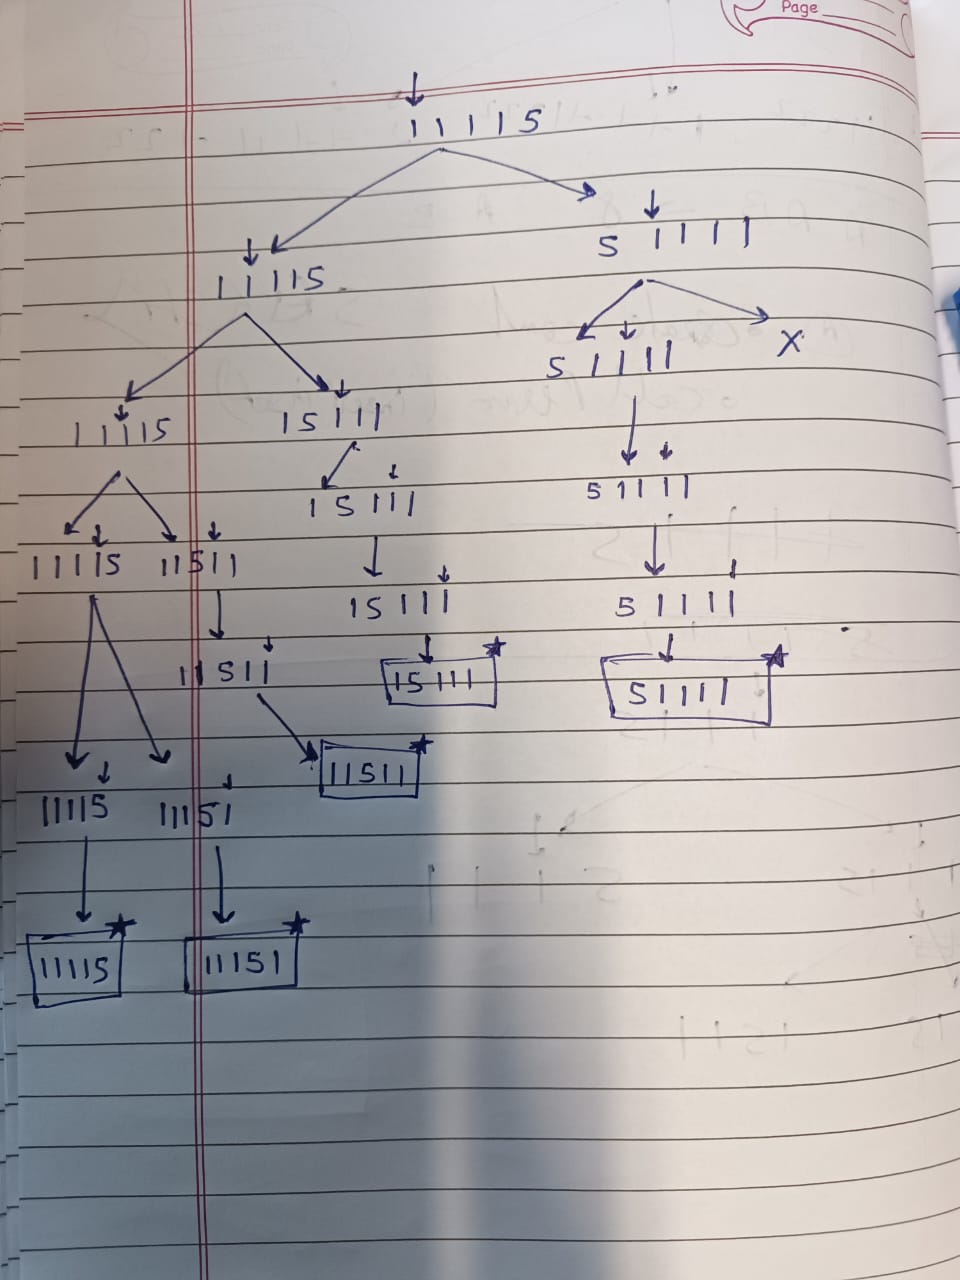 Page
11115
5 1111
11115
5 1111
X
11115
15111
5 1111
15111
11115
11511
15111
5 1111
11511
15111
51111
11511
11115
11151
11115
11151